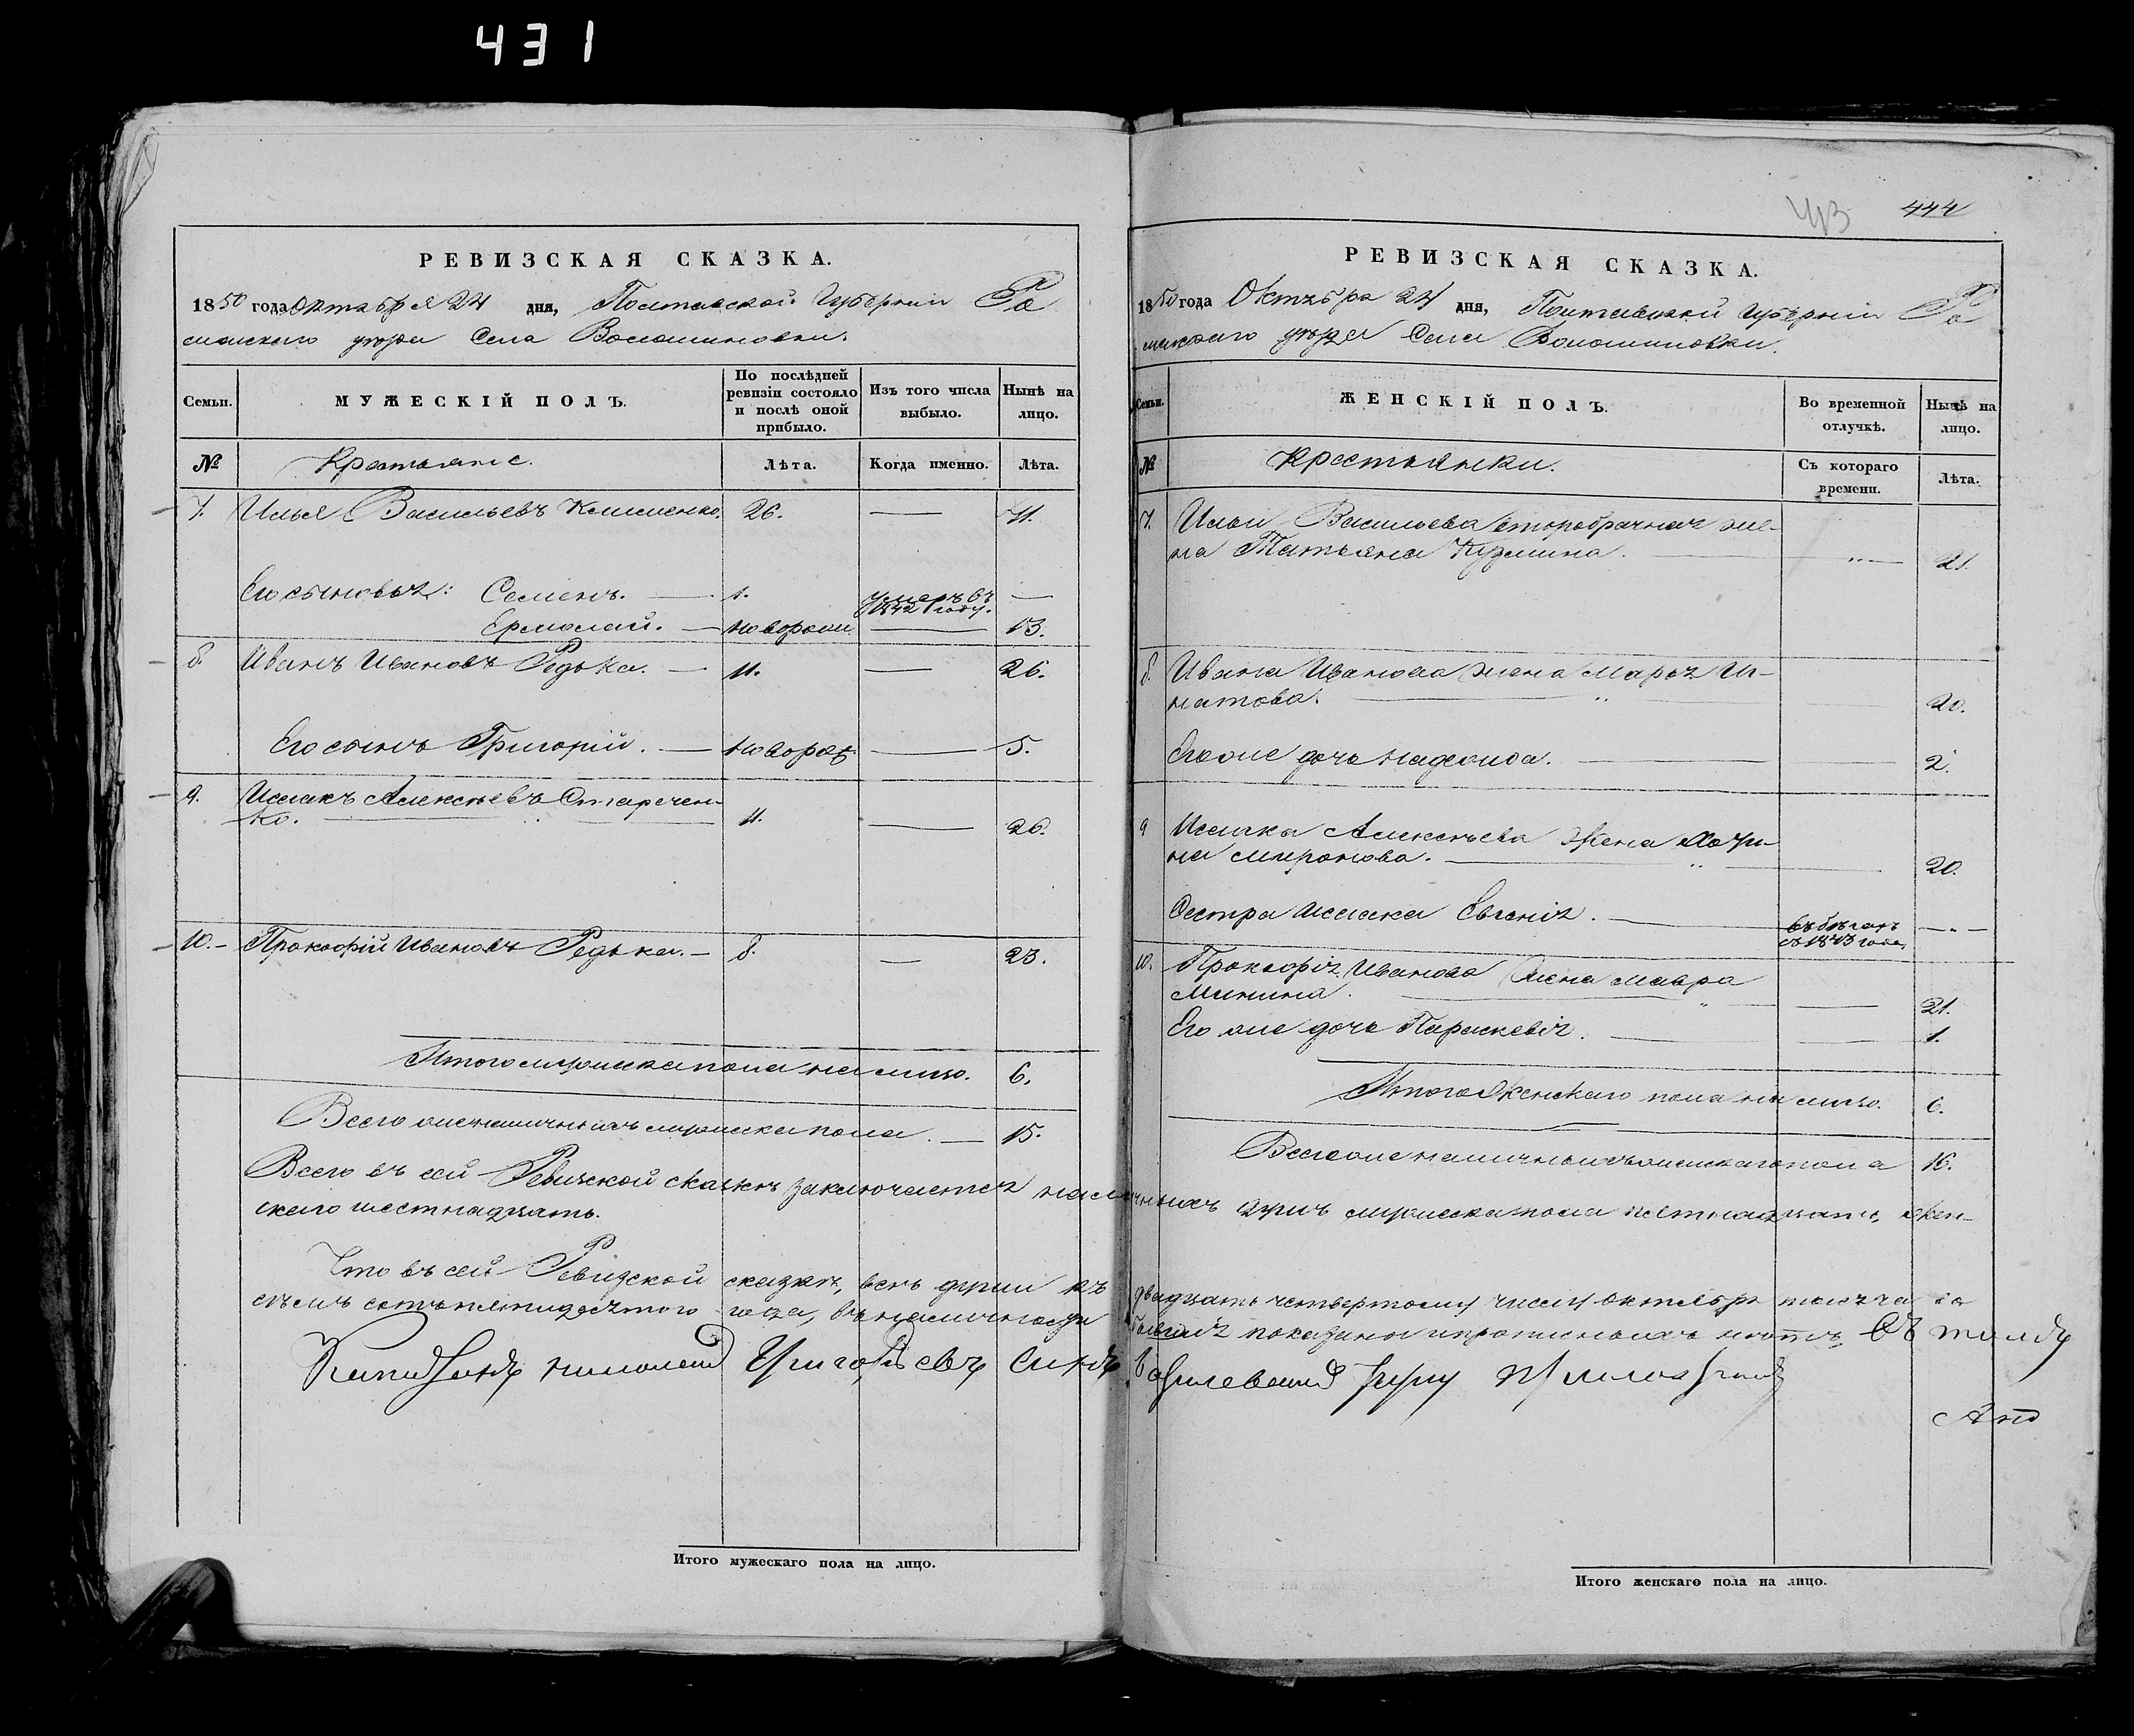 431
РЕВИЗСКАЯ СКАЗКА.
1850 года Октября 24 дня, Полтавской Губерніи Ро
менскаго уезда Села Волошиновки.
Семьи.
МУЖЕСКІЙ ПОЛЪ.
По послѣдней ревизіи состояло и послѣ оной прибыло.
Изъ того числа выбыло.
Нынѣ на лицо.
№
Крестьяне.
Лѣта.
Когда именно.
Лѣта.
7. Илья Васильевъ Клименко. 26. — 41.
Его сыновья: Семенъ. — 1. умеръ въ 1842 году. —
Ермолай. — новорож. — 13.
8. Иванъ Ивановъ Редька. — 11. — 26.
Его сынъ Григорій. — новорож. — 5.
9. Исаакъ Алексѣевъ Старечен-
ко. — 11. — 26.
10. — Прокофій Ивановъ Редька. — 8. — 23.
Итого мужеска пола на лицо. 6.
Всего же наличныхъ мужеска пола. — 15.
444
РЕВИЗСКАЯ СКАЗКА.
1850 года Октября 24 дня, Полтавской Губерніи Ро
менскаго уезда Села Волошиновки.
Семьи.
ЖЕНСКІЙ ПОЛЪ.
Во временной отлучкѣ.
Нынѣ на лицо.
№
Крестьянки.
Съ котораго времени.
Лѣта.
7. Ильи Васильева второбрачная же-
на Татьяна Кузмина. — 21.
8. Ивана Иванова жена Марья Иг-
натова. — 20.
Его же дочь Надежда. — 2.
9 Исаака Алексѣева жена
на Миронова. — 20.
Сестра Исаака Евгенія. — въ бѣгахъ съ 1843 года —
10. Прокофія Иванова жена Мавра
Минина. — 21.
Его же дочь Параскевія. — 1.
Итого Женскаго пола на лицо. 6.
Всего же наличныхъ женскаго пола 16.
Всего въ сей Ревизской сказкѣ заключается наличныхъ душъ мужеска пола пятнадцать, жен-
скаго шестнадцать.
Что въ сей Ревизской сказкѣ, всѣ души къ двадцать четвертому числу Октября мѣсяца
пятидесятого года, въ наличности бывшія показаны и прописныхъ нѣтъ, Въ томъ
Григорьевъ Сынъ руку приложилъ
Итого мужескаго пола на лицо.
Итого женскаго пола на лицо.